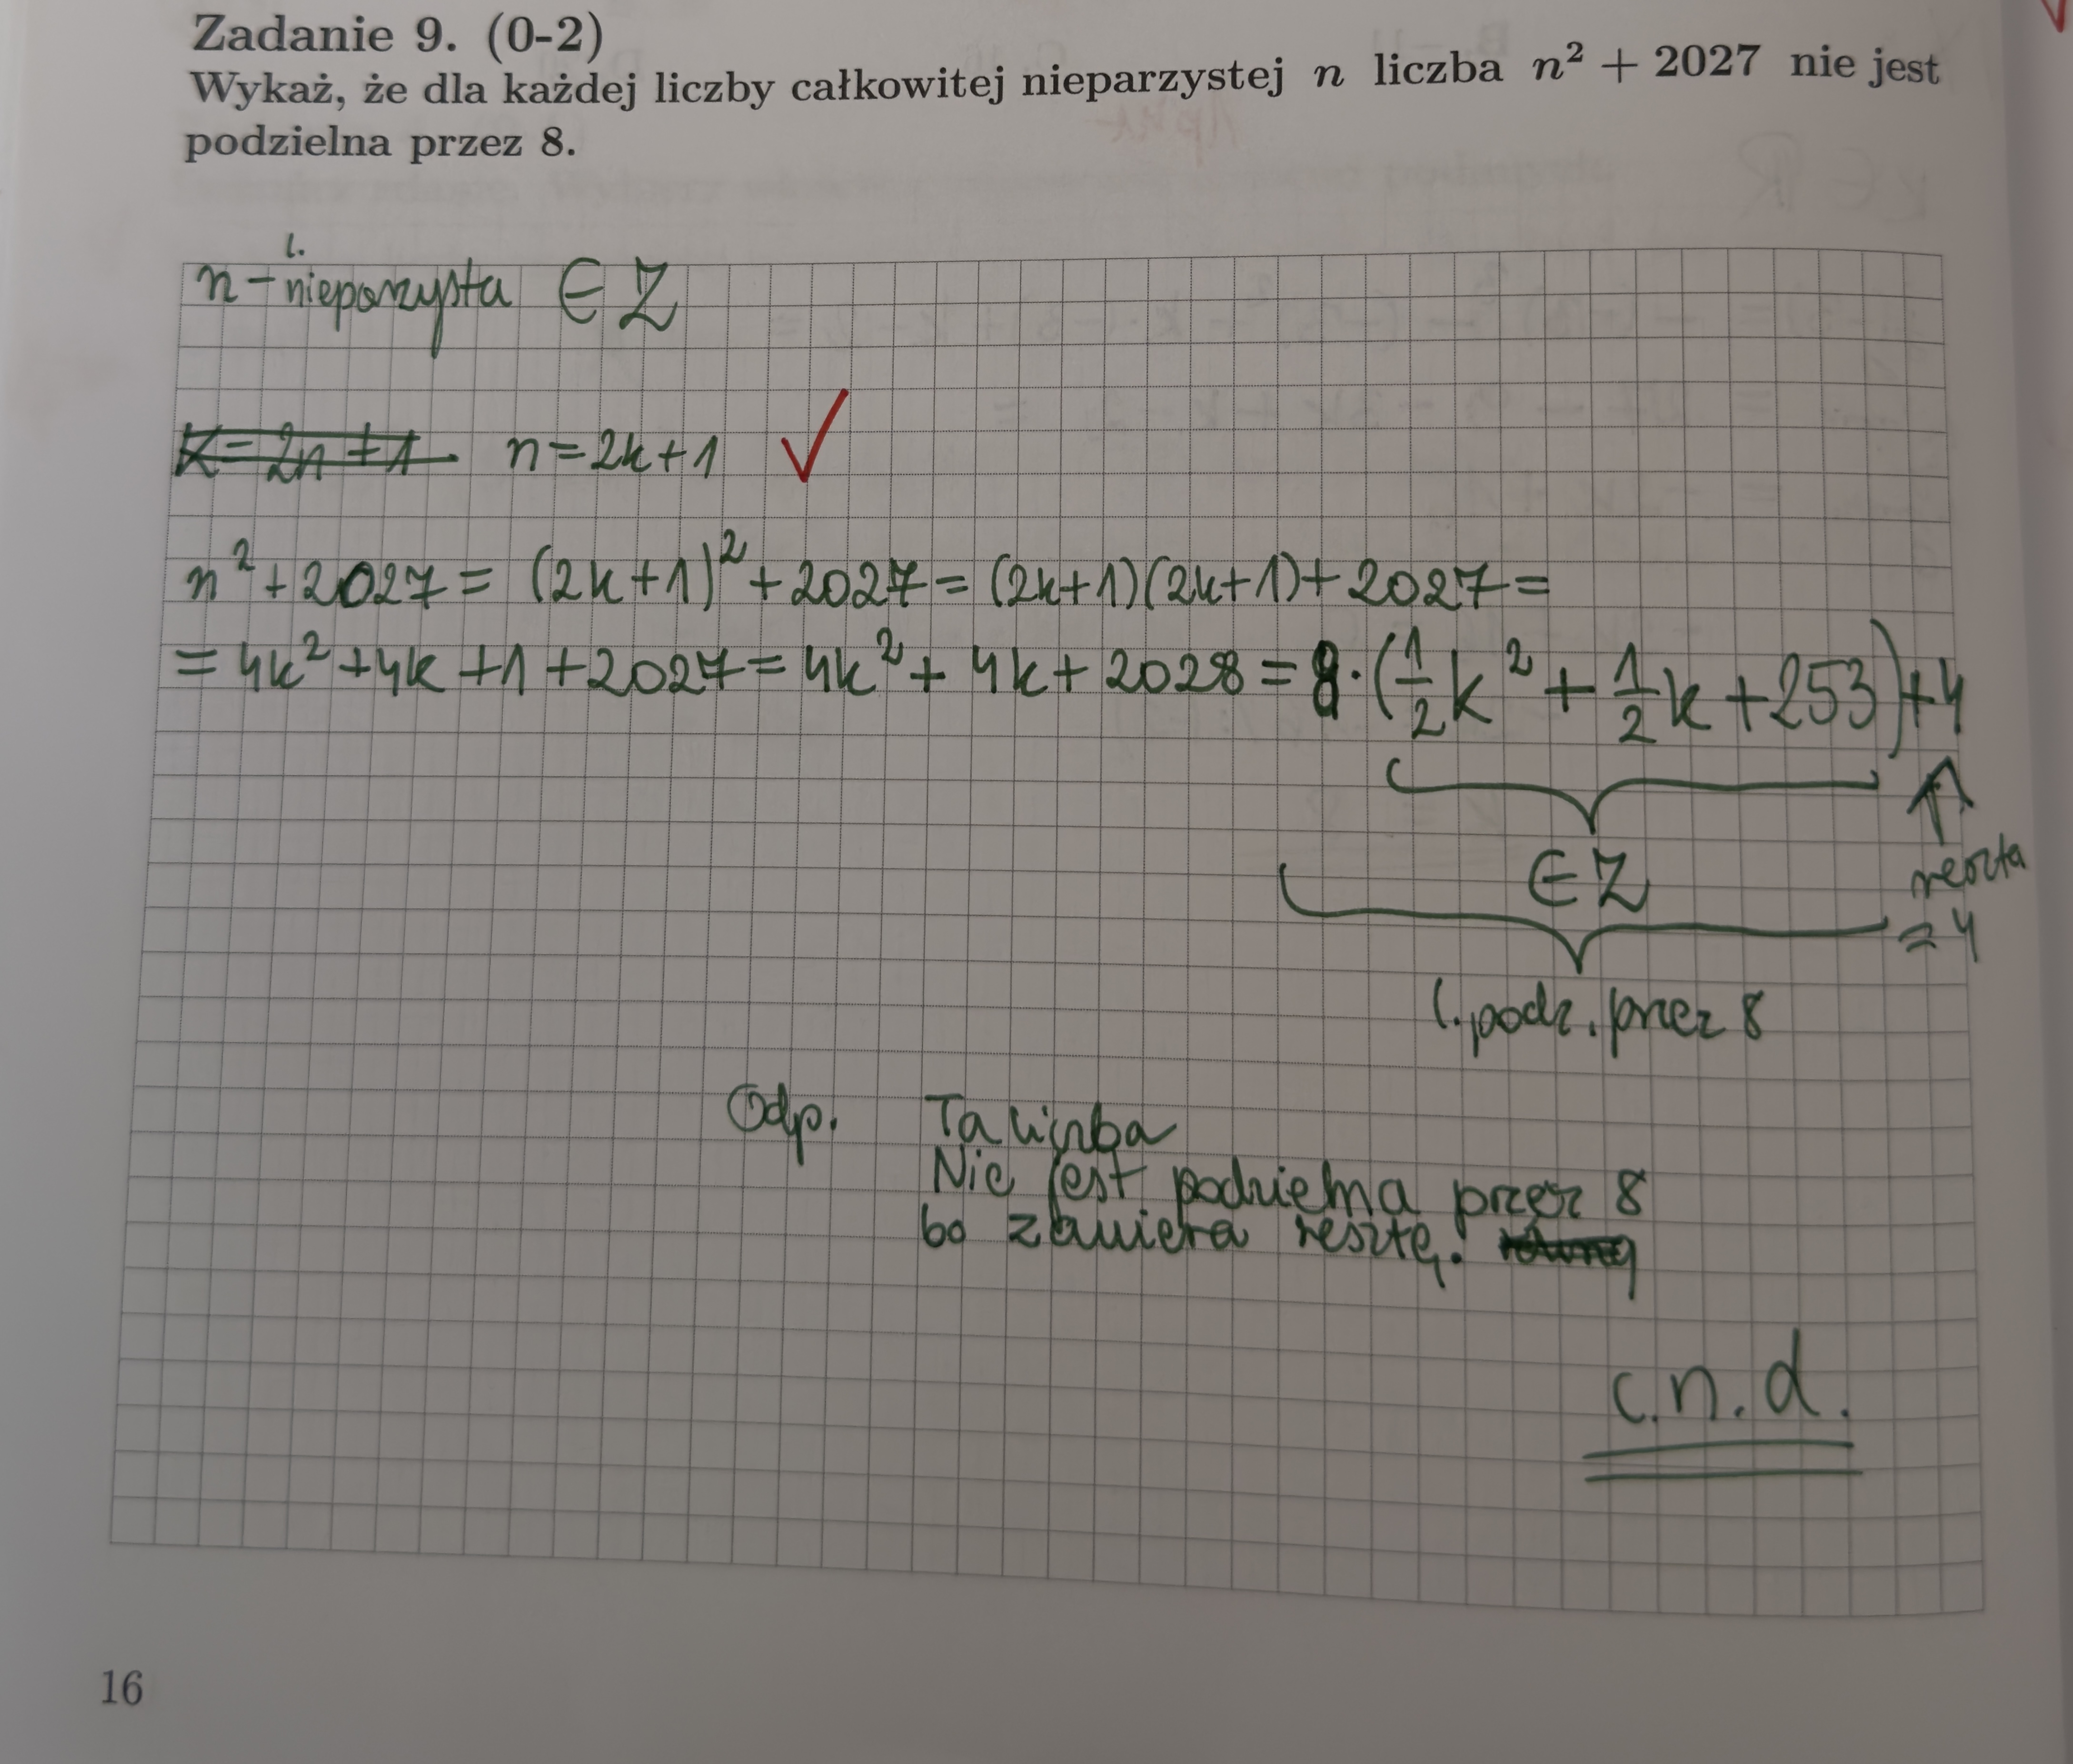 Zadanie 9. (0-2)
Wykaż, że dla każdej liczby całkowitej nieparzystej n liczba n² + 2027 nie jest
podzielna przez 8.
l.
n - nieparzysta ∈ Z
K = 2n + 1 n = 2k + 1 ✓
n² + 2027 = (2k+1)² + 2027 = (2k+1)(2k+1) + 2027 =
= 4k² + 4k + 1 + 2027 = 4k² + 4k + 2028 = 8·(1/2 k² + 1/2 k + 253) + 4
∈ Z
reszta
= 4
l. podz. przez 8
Odp. Ta liczba
Nie jest podzielna przez 8
bo zawiera resztę.
c.n.d.
16